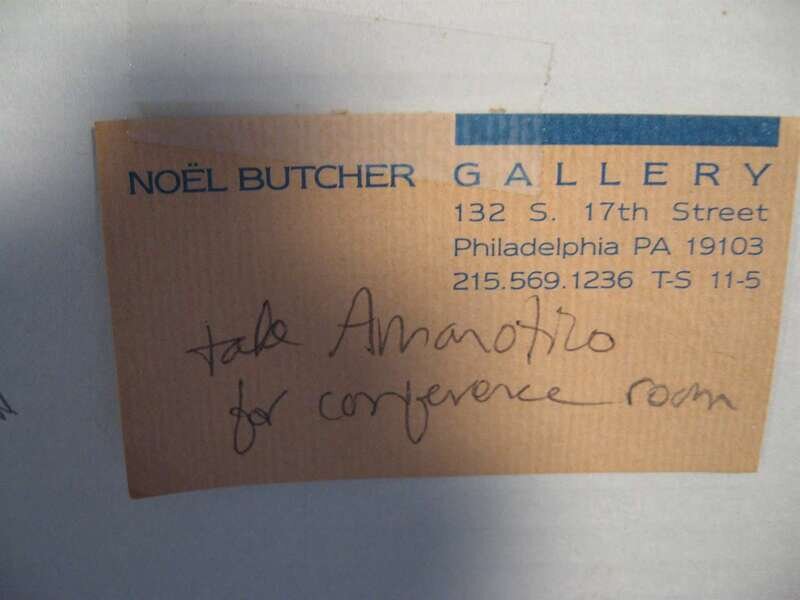 NOËL BUTCHER GALLERY
132 S. 17th Street
Philadelphia PA 19103
215.569.1236 T-S 11-5
take
for conference room